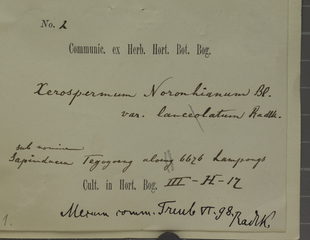 No. 2
Communic. ex Herb. Hort. Bot. Bog.
Xerospermum Noronhianum Bl.
var. lanceolatum Radlk.
sub nomine
Sapindacea 6676 Lampongs
Cult. in Hort. Bog. III-H-17
Merum comm. Treub VI.98. Radlk.
1.